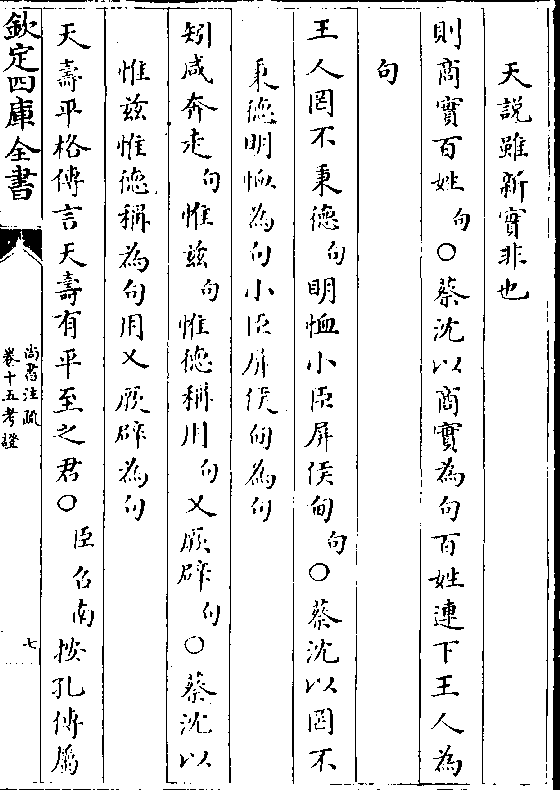 天説雖新實非也
則商實百姓句○蔡沈以商實為句百姓連下王人為
句
王人罔不秉德句明恤小臣屏侯甸句○蔡沈以罔不
秉德明恤為句小臣屏侯甸為句
矧咸奔走句惟兹句惟德稱用句乂厥辟句○蔡沈以
惟兹惟德稱為句用乂厥辟為句
天壽平格傳言天壽有平至之君○臣召南按孔傳屬
欽定四庫全書
尚書注疏
卷十五考證
七